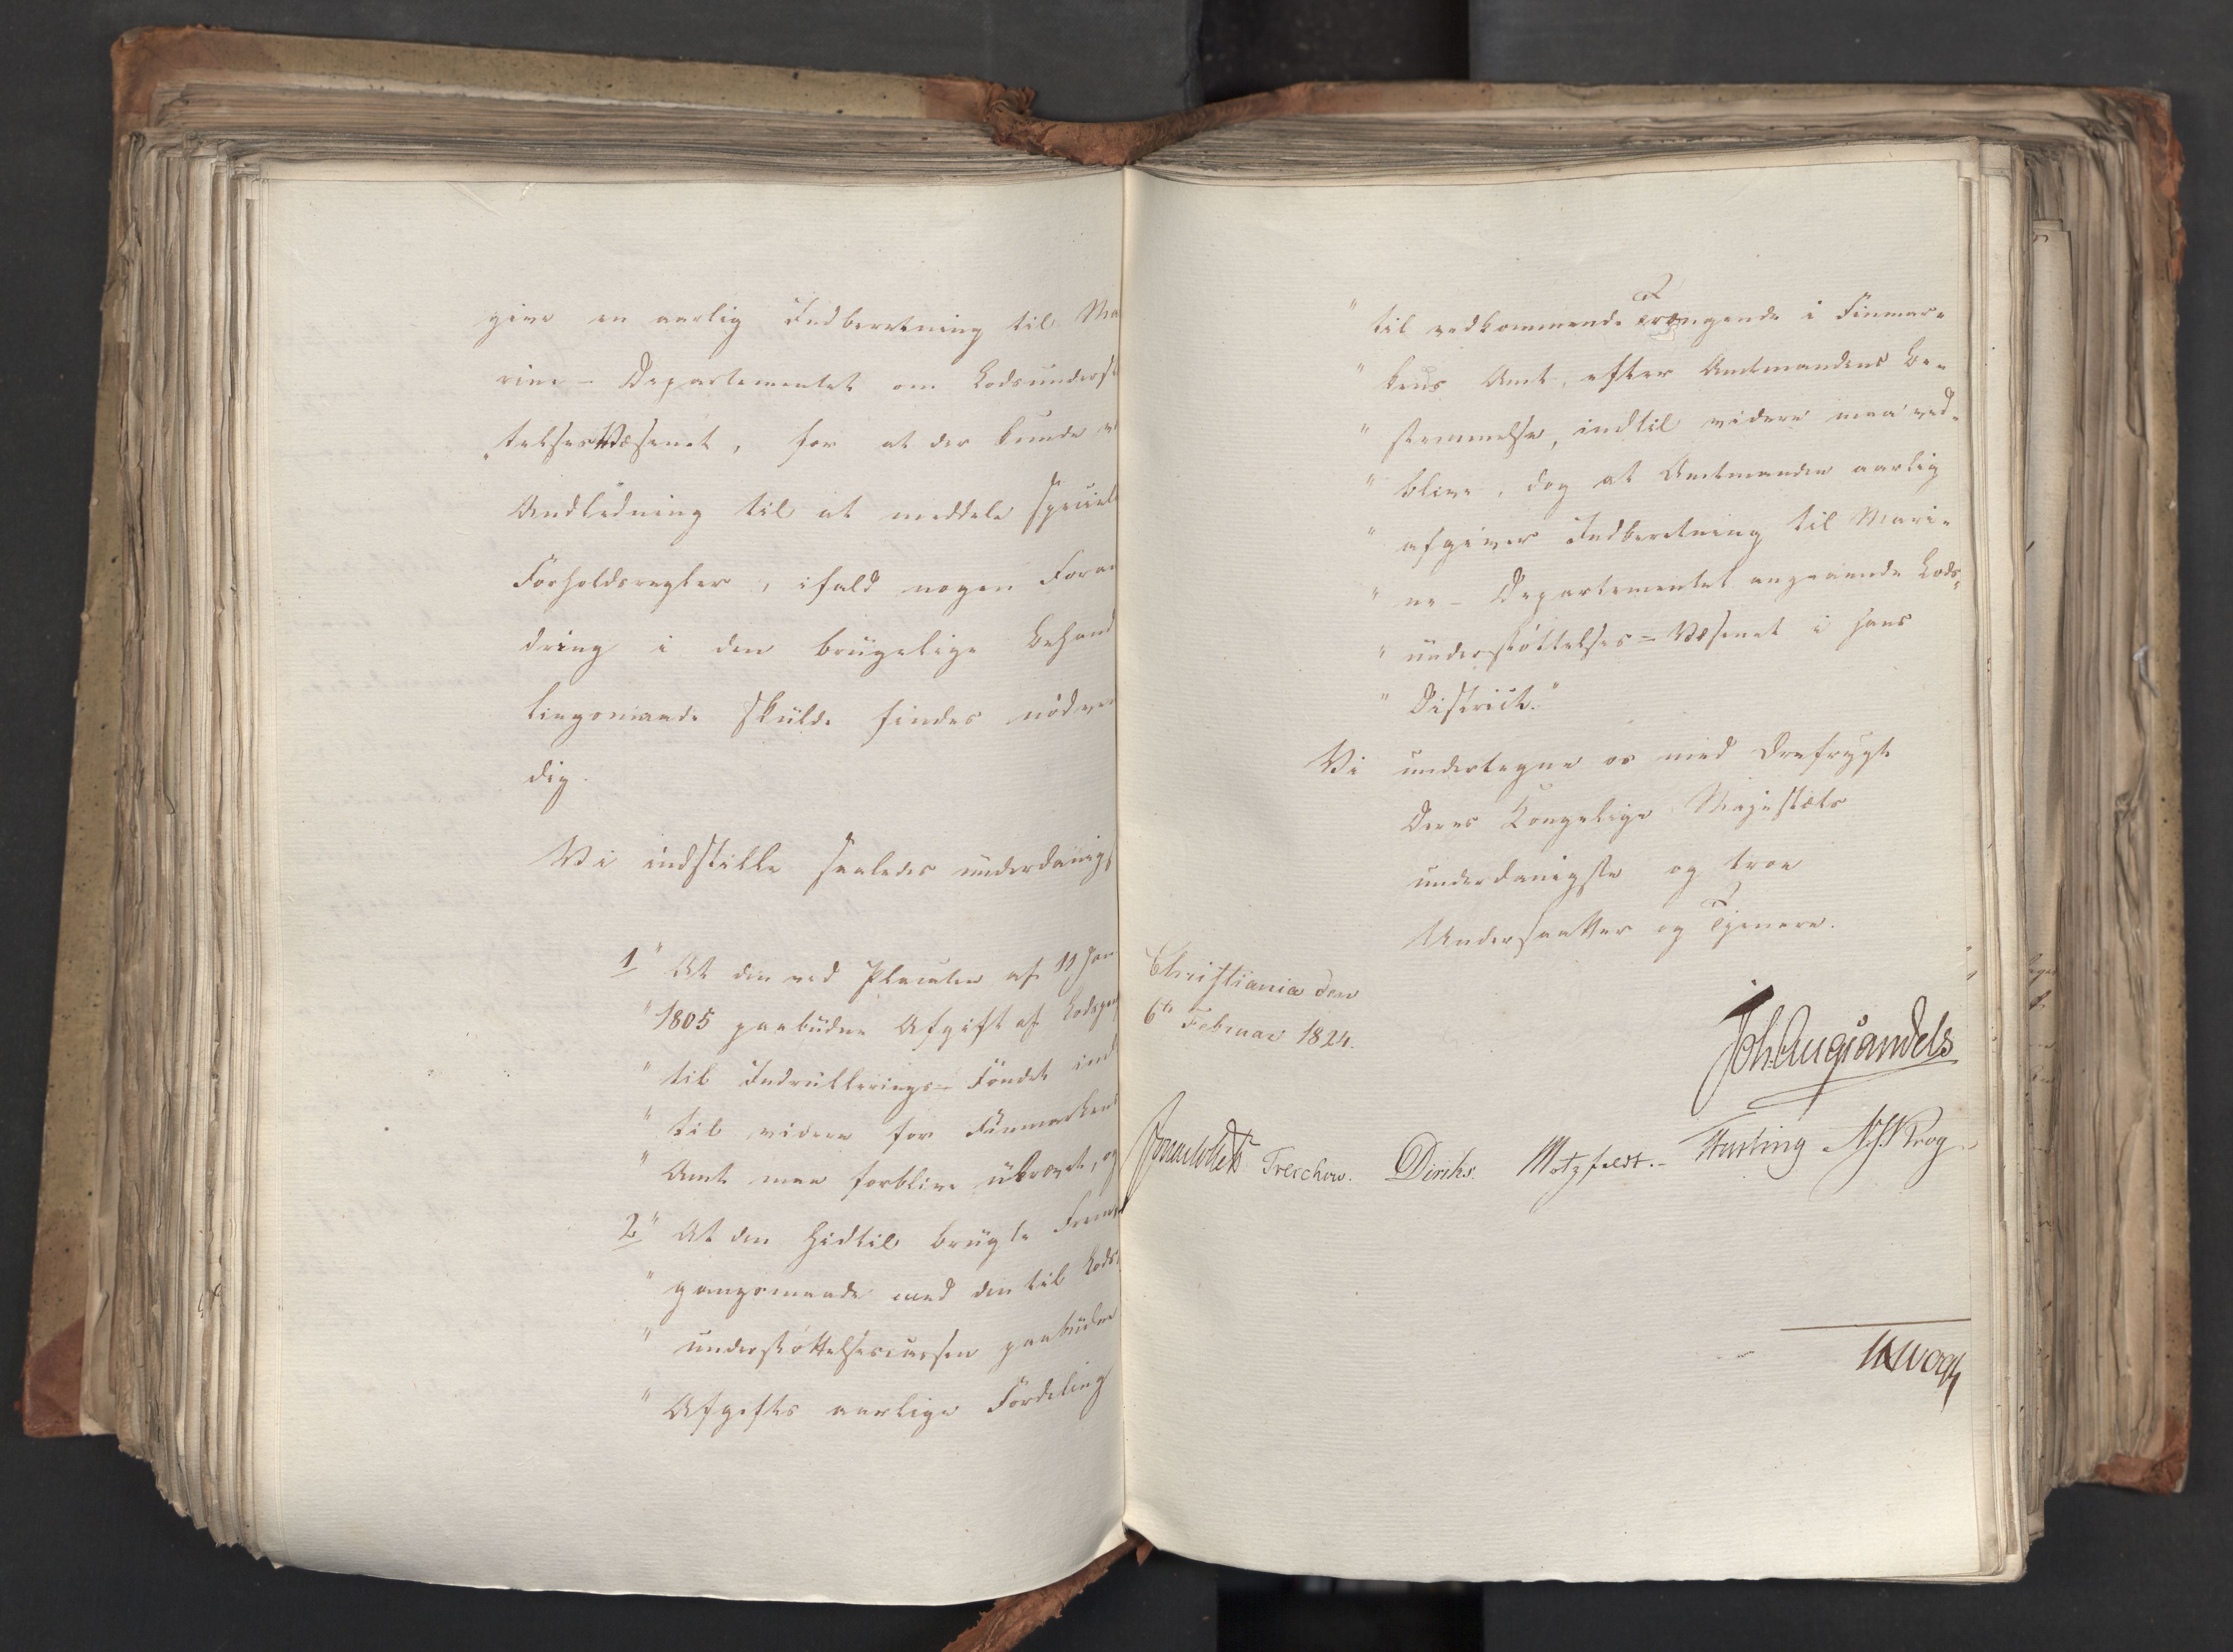 give en aarlig Indberetning til Ma
rine - Departementet om Lodsunderst
telsesVæsenet, for at der kunde
Andledning til at meddele speciel
Forholdsregler, ifald nogen Foran
dring i den brugelige Behand
lingsmaade skulde findes nödven
dig.
Vi indstille saaledes underdanigs
1 " At den ved Placaten af 11 Jan
" 1805 paabudne Afgift af Lodspen
" til Indrullerings-Fondet ind
" til videre for Finmarkens
" Amt maa forblive ukrævet, og
2 " At den hidtil brugte Frem
" gangsmaade med den til Lods
" understöttelsescassen paabudne
" Afgifts aarlige Fordeling
" til vedkommende Trængende i Finmar-
" kens Amt, efter Amtmandens Be-
" stemmelse, indtil videre maa ved-
" blive, dog at Amtmanden aarlig
" afgiver Indberetning til Mari-
" ne - Departementet angaaende Lods-
" understöttelses-Væsenet i hans
" District."
Vi undertegne os med Ærefrygt
Deres Kongelige Majestæts
underdanigste og troe
Undersaatter og Tjenere.
Christiania den
6te Februar 1824.
Joh. Aug. Sandels
Sommerhielm Treschow. Diriks. Motzfeldt. Fasting